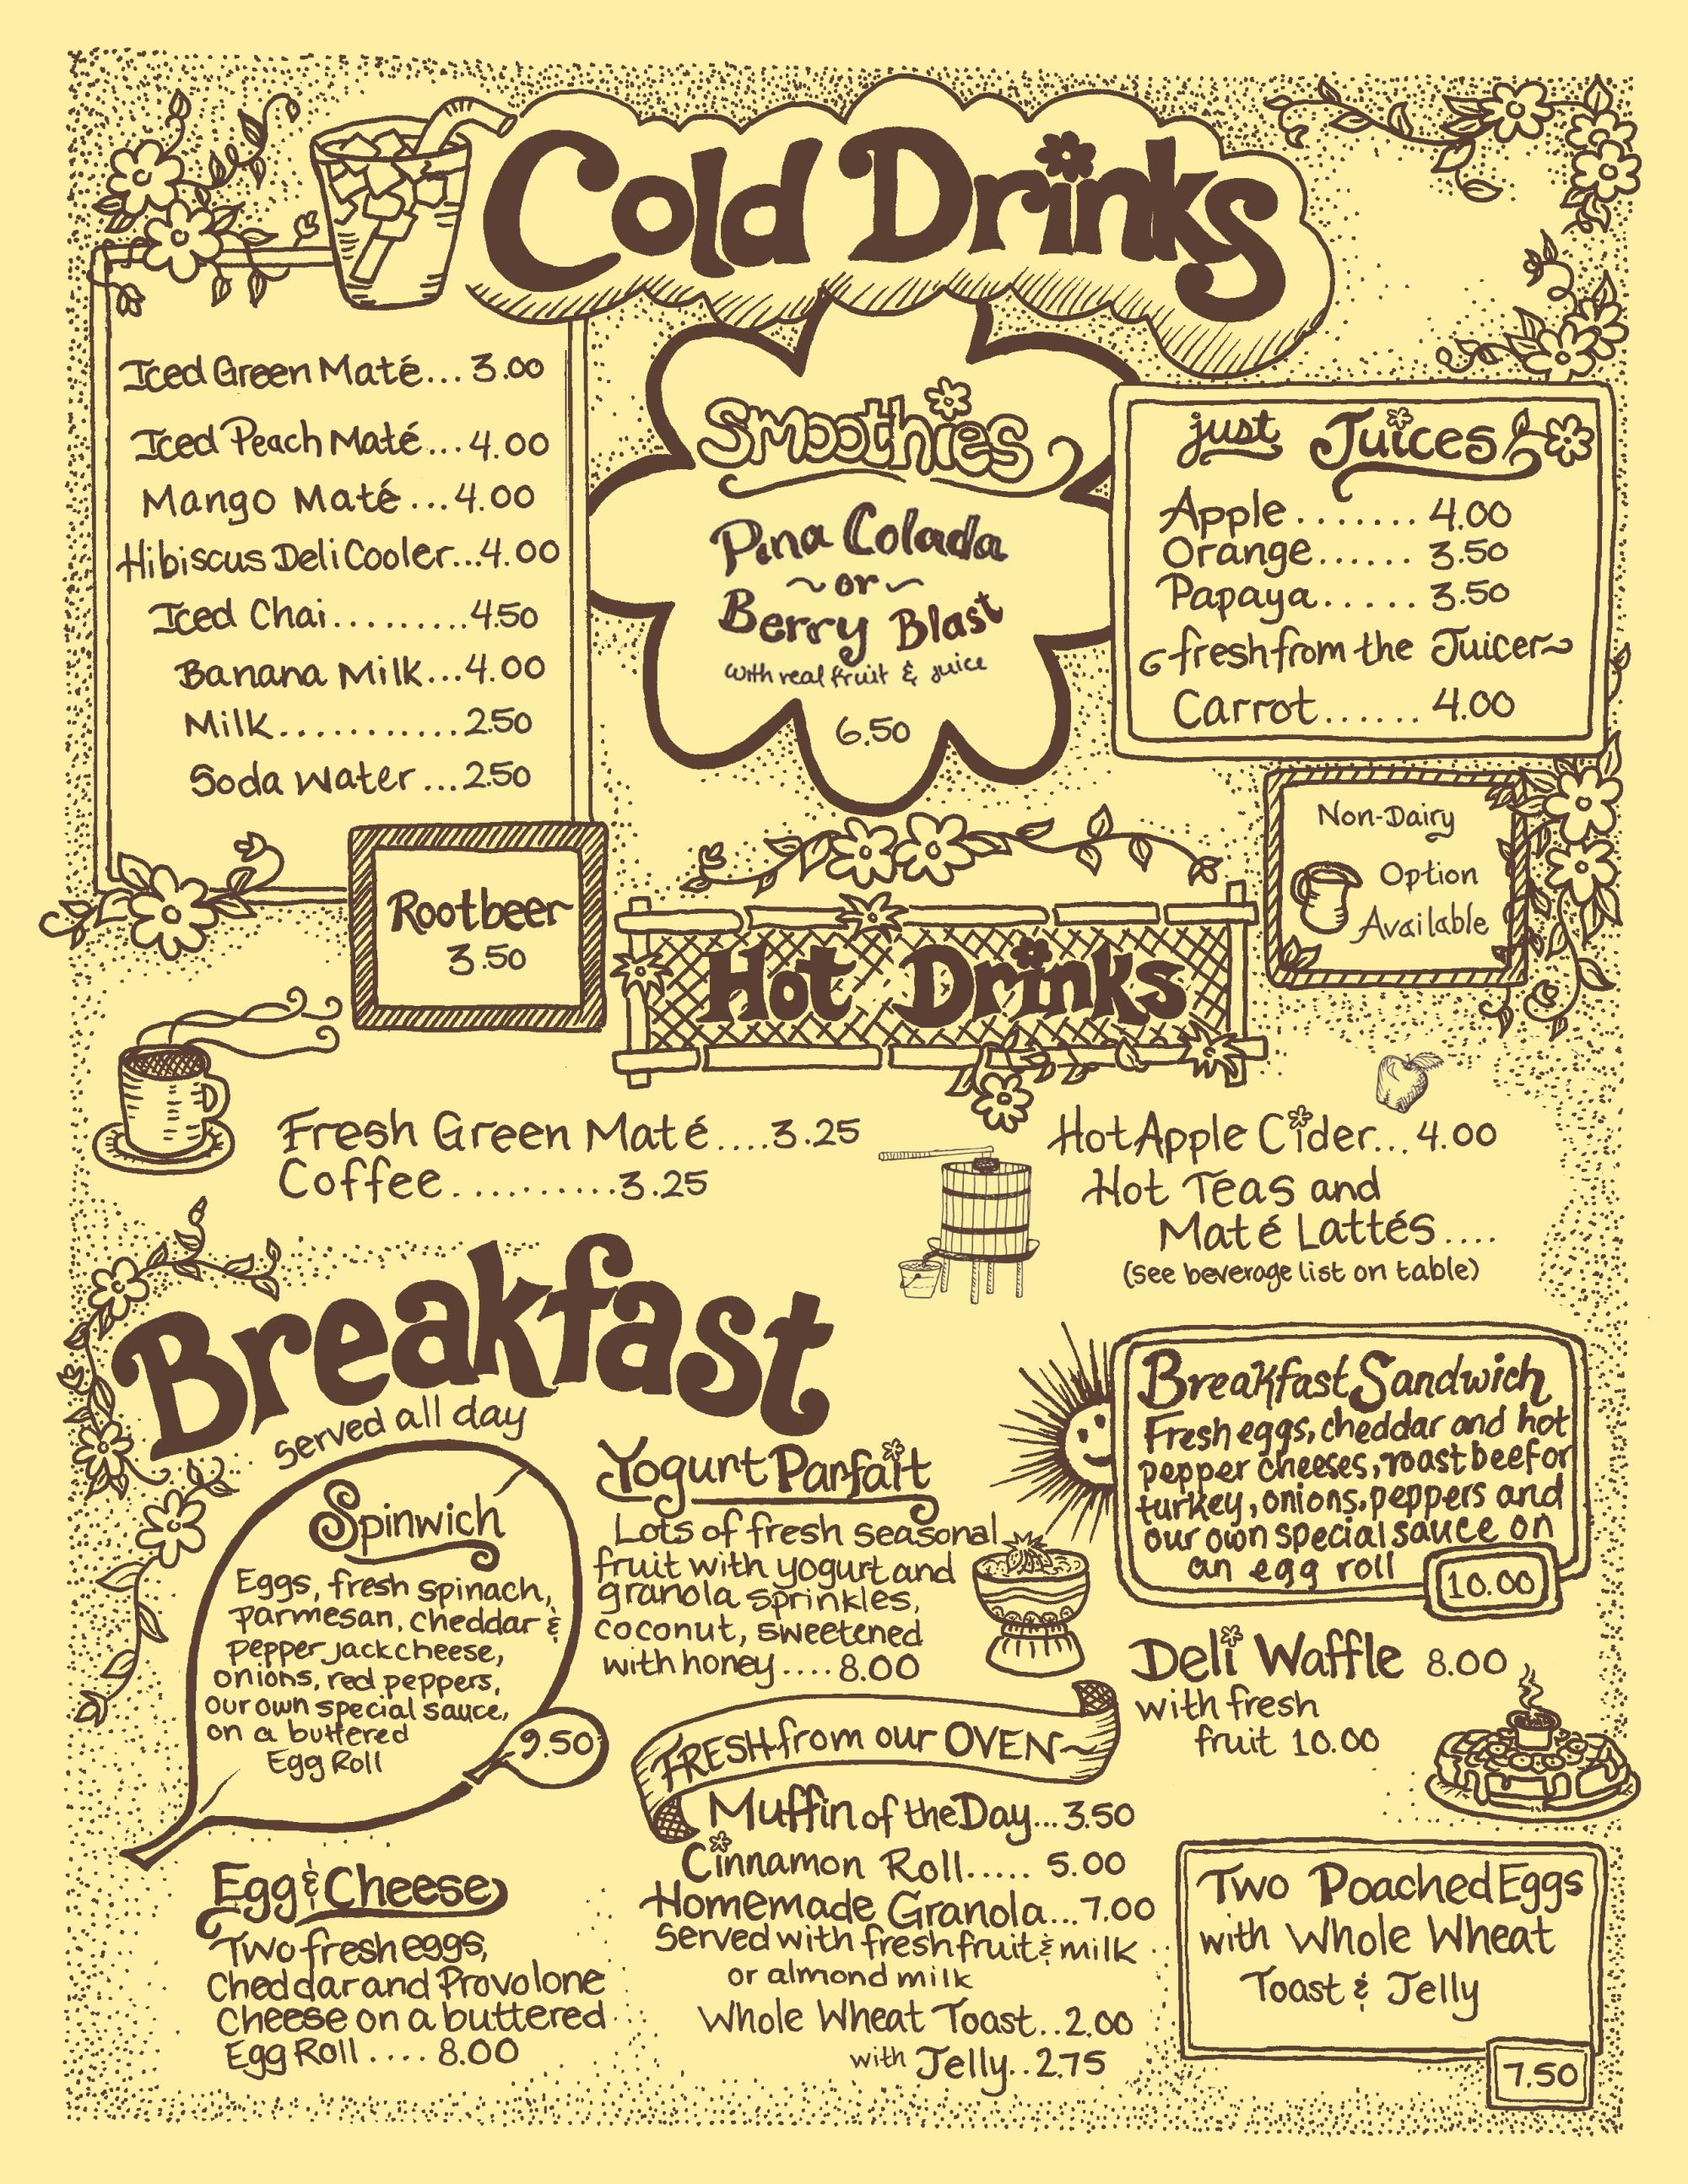 Cold Drinks
Iced Green Maté... 3.00
Iced Peach Maté...4.00
Mango Maté...4.00
Hibiscus Deli Cooler...4.00
Iced Chai..........4.50
Banana Milk...4.00
Milk............2.50
Soda Water...2.50
Rootbeer
3.50
Smoothies
Pina Colada
~or~
Berry Blast
with real fruit & juice
6.50
just Juices
Apple........ 4.00
Orange...... 3.50
Papaya...... 3.50
fresh from the Juicer
Carrot...... 4.00
Non-Dairy
Option
Available
Hot Drinks
Fresh Green Maté....3.25
Coffee...........3.25
Hot Apple Cider... 4.00
Hot Teas and
Maté Lattés....
(see beverage list on table)
Breakfast
served all day
Spinwich
Eggs, fresh spinach,
parmesan, cheddar &
pepper jack cheese,
onions, red peppers,
our own special sauce,
on a buttered
Egg Roll
9.50
Egg & Cheese
Two fresh eggs,
Cheddar and Provolone
Cheese on a buttered
Egg Roll.... 8.00
Yogurt Parfait
Lots of fresh seasonal
fruit with yogurt and
granola sprinkles,
coconut, sweetened
with honey.... 8.00
FRESH from our OVEN~
Muffin of the Day...3.50
Cinnamon Roll..... 5.00
Homemade Granola...7.00
Served with fresh fruit & milk
or almond milk
Whole Wheat Toast..2.00
with Jelly..2.75
Breakfast Sandwich
Fresh eggs, cheddar and hot
pepper cheeses, roast beef or
turkey, onions, peppers and
our own special sauce on
an egg roll
10.00
Deli Waffle 8.00
with fresh
fruit 10.00
Two Poached Eggs
with Whole Wheat
Toast & Jelly
7.50